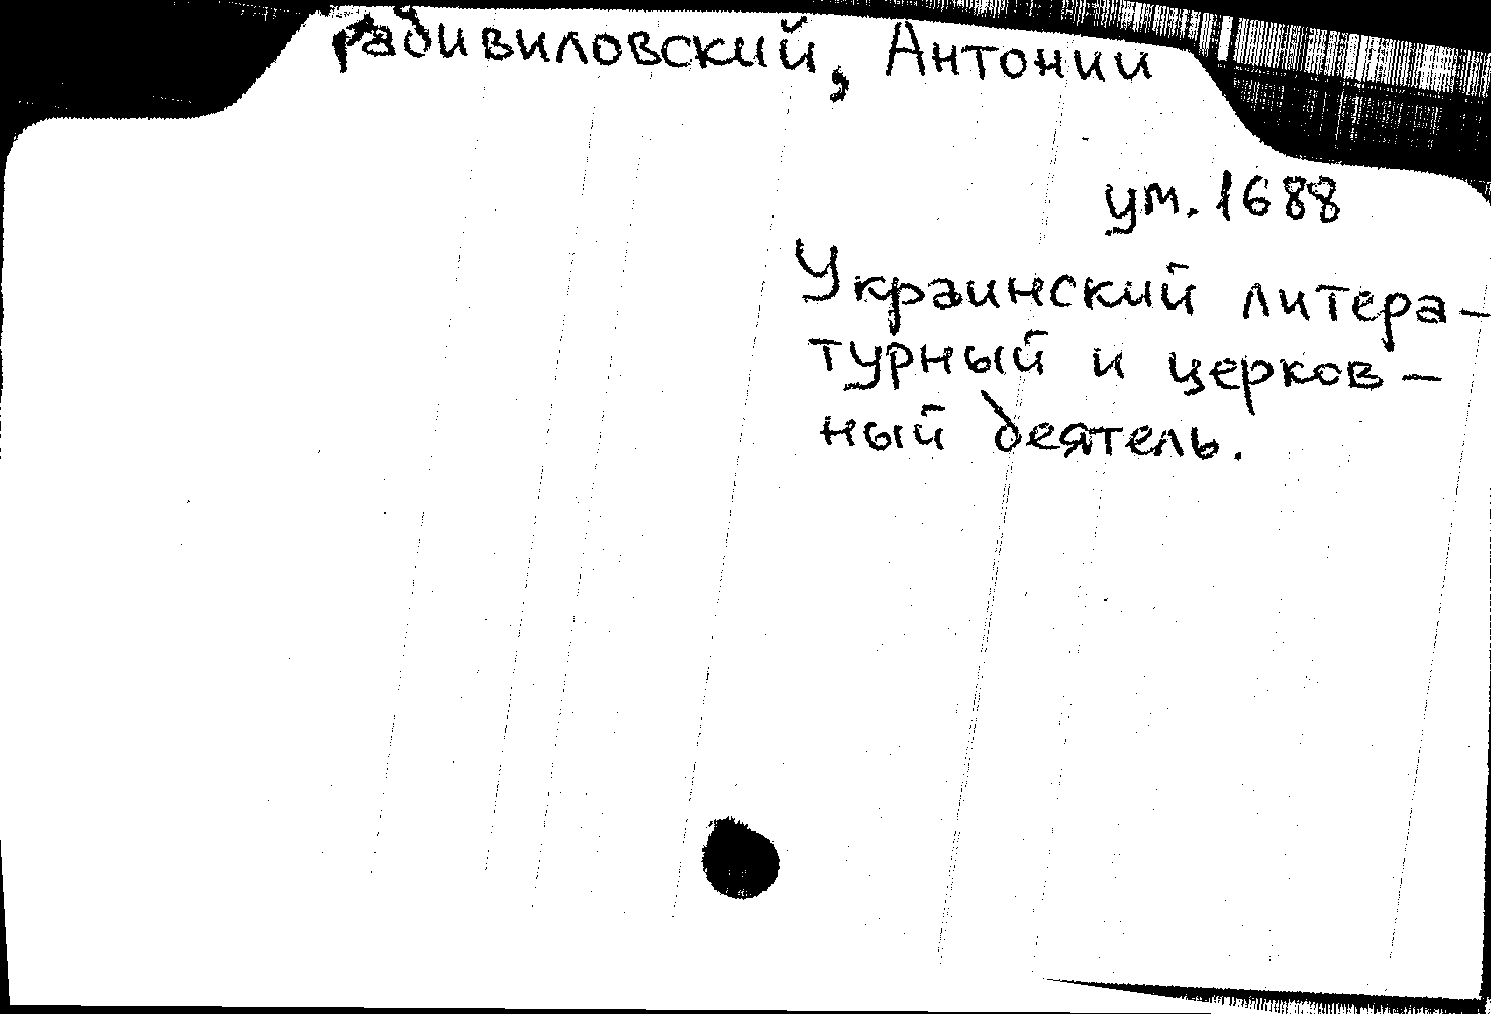 Радивиловский, Антонии
ум. 1688
Украинский литера-
турный и церков-
ный деятель.